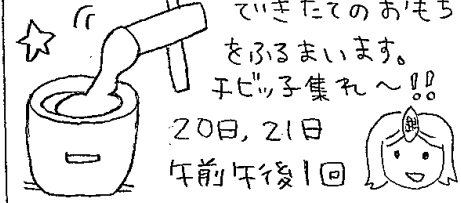 できたてのおもち
をふるまいます。
チビッ子集れ〜!!
20日,21日
午前午後1回